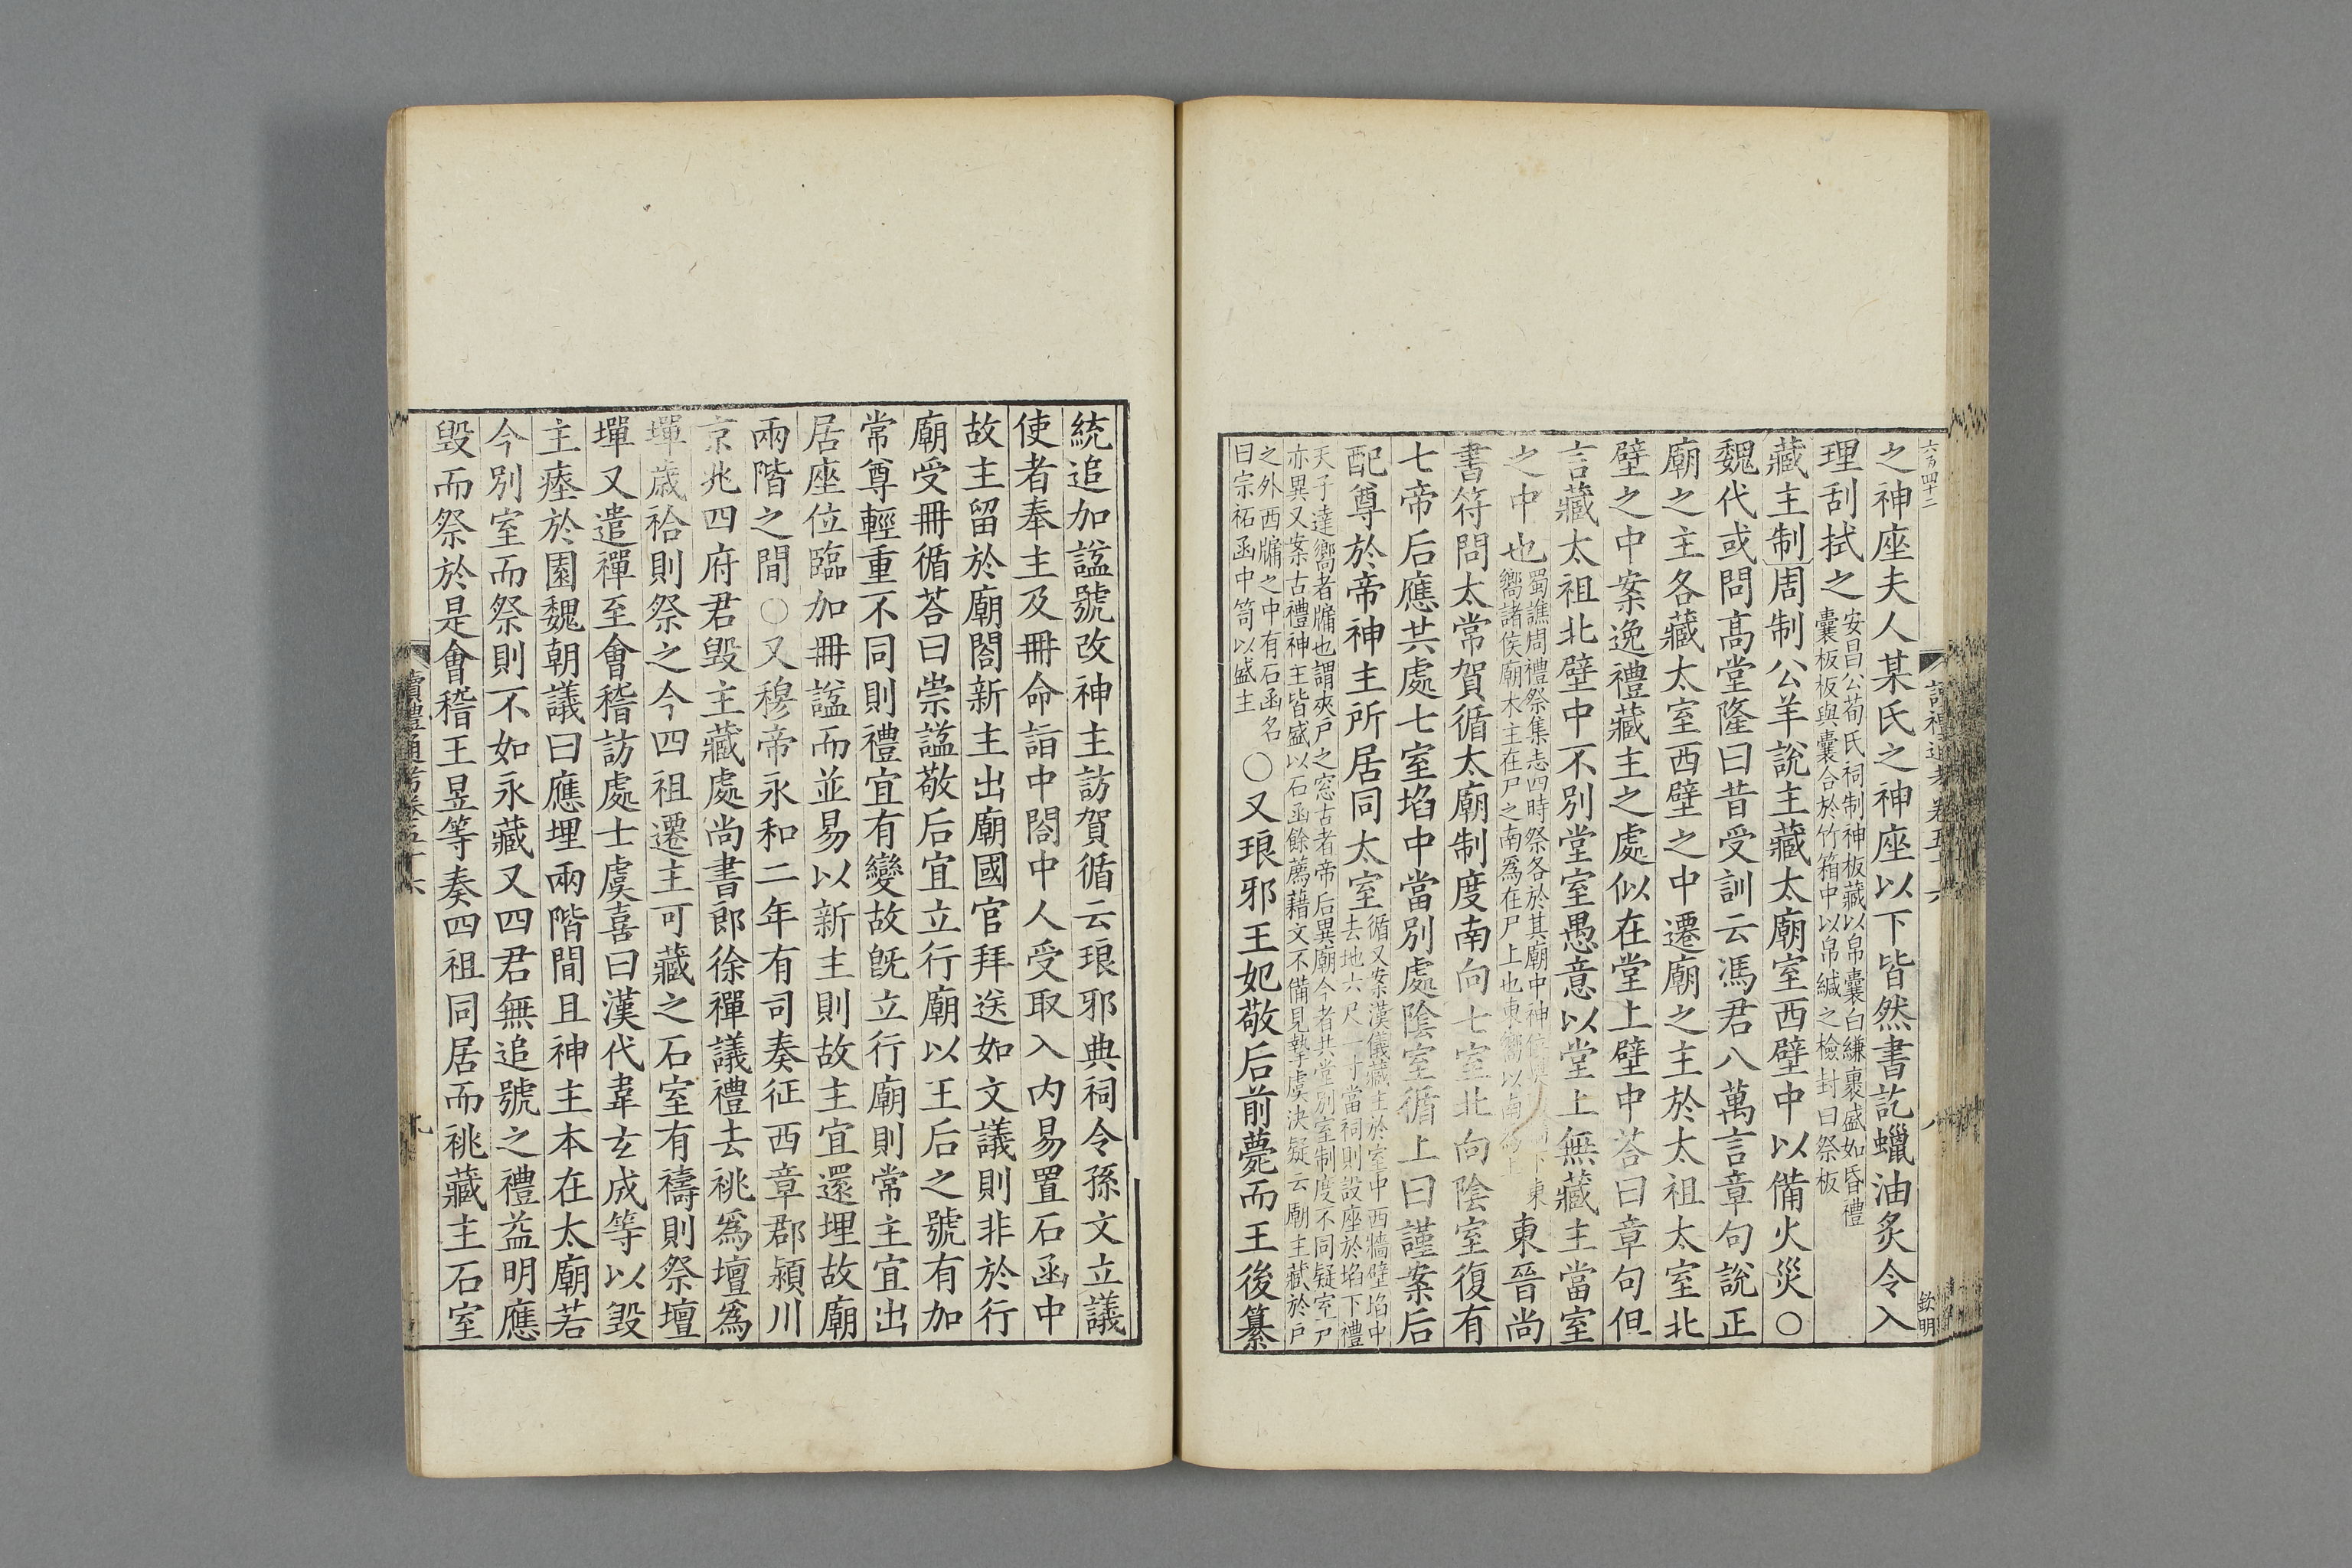 六百四十二
之神座夫人某氏之神座以下皆然書訖蠟油炙令入
理刮拭之安昌公荀氏祠制神板藏以帛囊白縑裹盛如昏禮
囊板板與囊合於竹箱中以帛緘之檢封曰祭板
藏主制周制公羊說主藏太廟室西壁中以備火災○
魏代或問高堂隆曰昔受訓云馮君八萬言章句說正
廟之主各藏太室西壁之中遷廟之主於太祖太室北
壁之中案逸禮藏主之處似在堂上壁中荅曰章句但
言藏太祖北壁中不別堂室愚意以堂上無藏主當室
之中也蜀譙周禮祭集志四時祭各於其廟中神位奧下東
嚮諸侯廟木主在尸之南爲在尸上也東嚮以南爲上東晉尚
書符問太常賀循太廟制度南向七室北向陰室復有
七帝后應共處七室埳中當別處陰室循上曰謹案后
配尊於帝神主所居同太室循又案漢儀藏主於室中西牆壁埳中
去地六尺一寸當祠則設座於埳下禮
天子達嚮者牖也謂夾戶之窓古者帝后異廟今者共堂別室制度不同疑室戶
亦異又案古禮神主皆盛以石函餘薦藉文不備見摯虞決疑云廟主藏於戶
之外西牖之中有石函名
曰宗祏函中笥以盛主○又琅邪王妃敬后前薨而王後纂
欽明
統追加諡號改神主訪賀循云琅邪典祠令孫文立議
使者奉主及冊命詣中閤中人受取入內易置石函中
故主留於廟閤新主出廟國官拜送如文議則非於行
廟受冊循荅曰崇諡敬后宜立行廟以王后之號有加
常尊輕重不同則禮宜有變故旣立行廟則常主宜出
居座位臨加冊諡而並易以新主則故主宜還埋故廟
兩階之間○又穆帝永和二年有司奏征西章郡潁川
京兆四府君毀主藏處尚書郎徐禪議禮去祧爲壇爲
墠歲祫則祭之今四祖遷主可藏之石室有禱則祭壇
墠又遣禪至會稽訪處士虞喜曰漢代韋玄成等以毀
主瘞於園魏朝議曰應埋兩階間且神主本在太廟若
今別室而祭則不如永藏又四君無追號之禮益明應
毀而祭於是會稽王昱等奏四祖同居而祧藏主石室
讀禮通考卷五十六